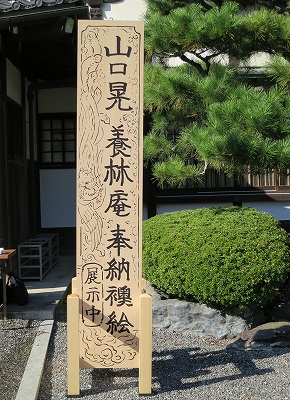 山口晃 養林庵 奉納襖絵
(展示中)